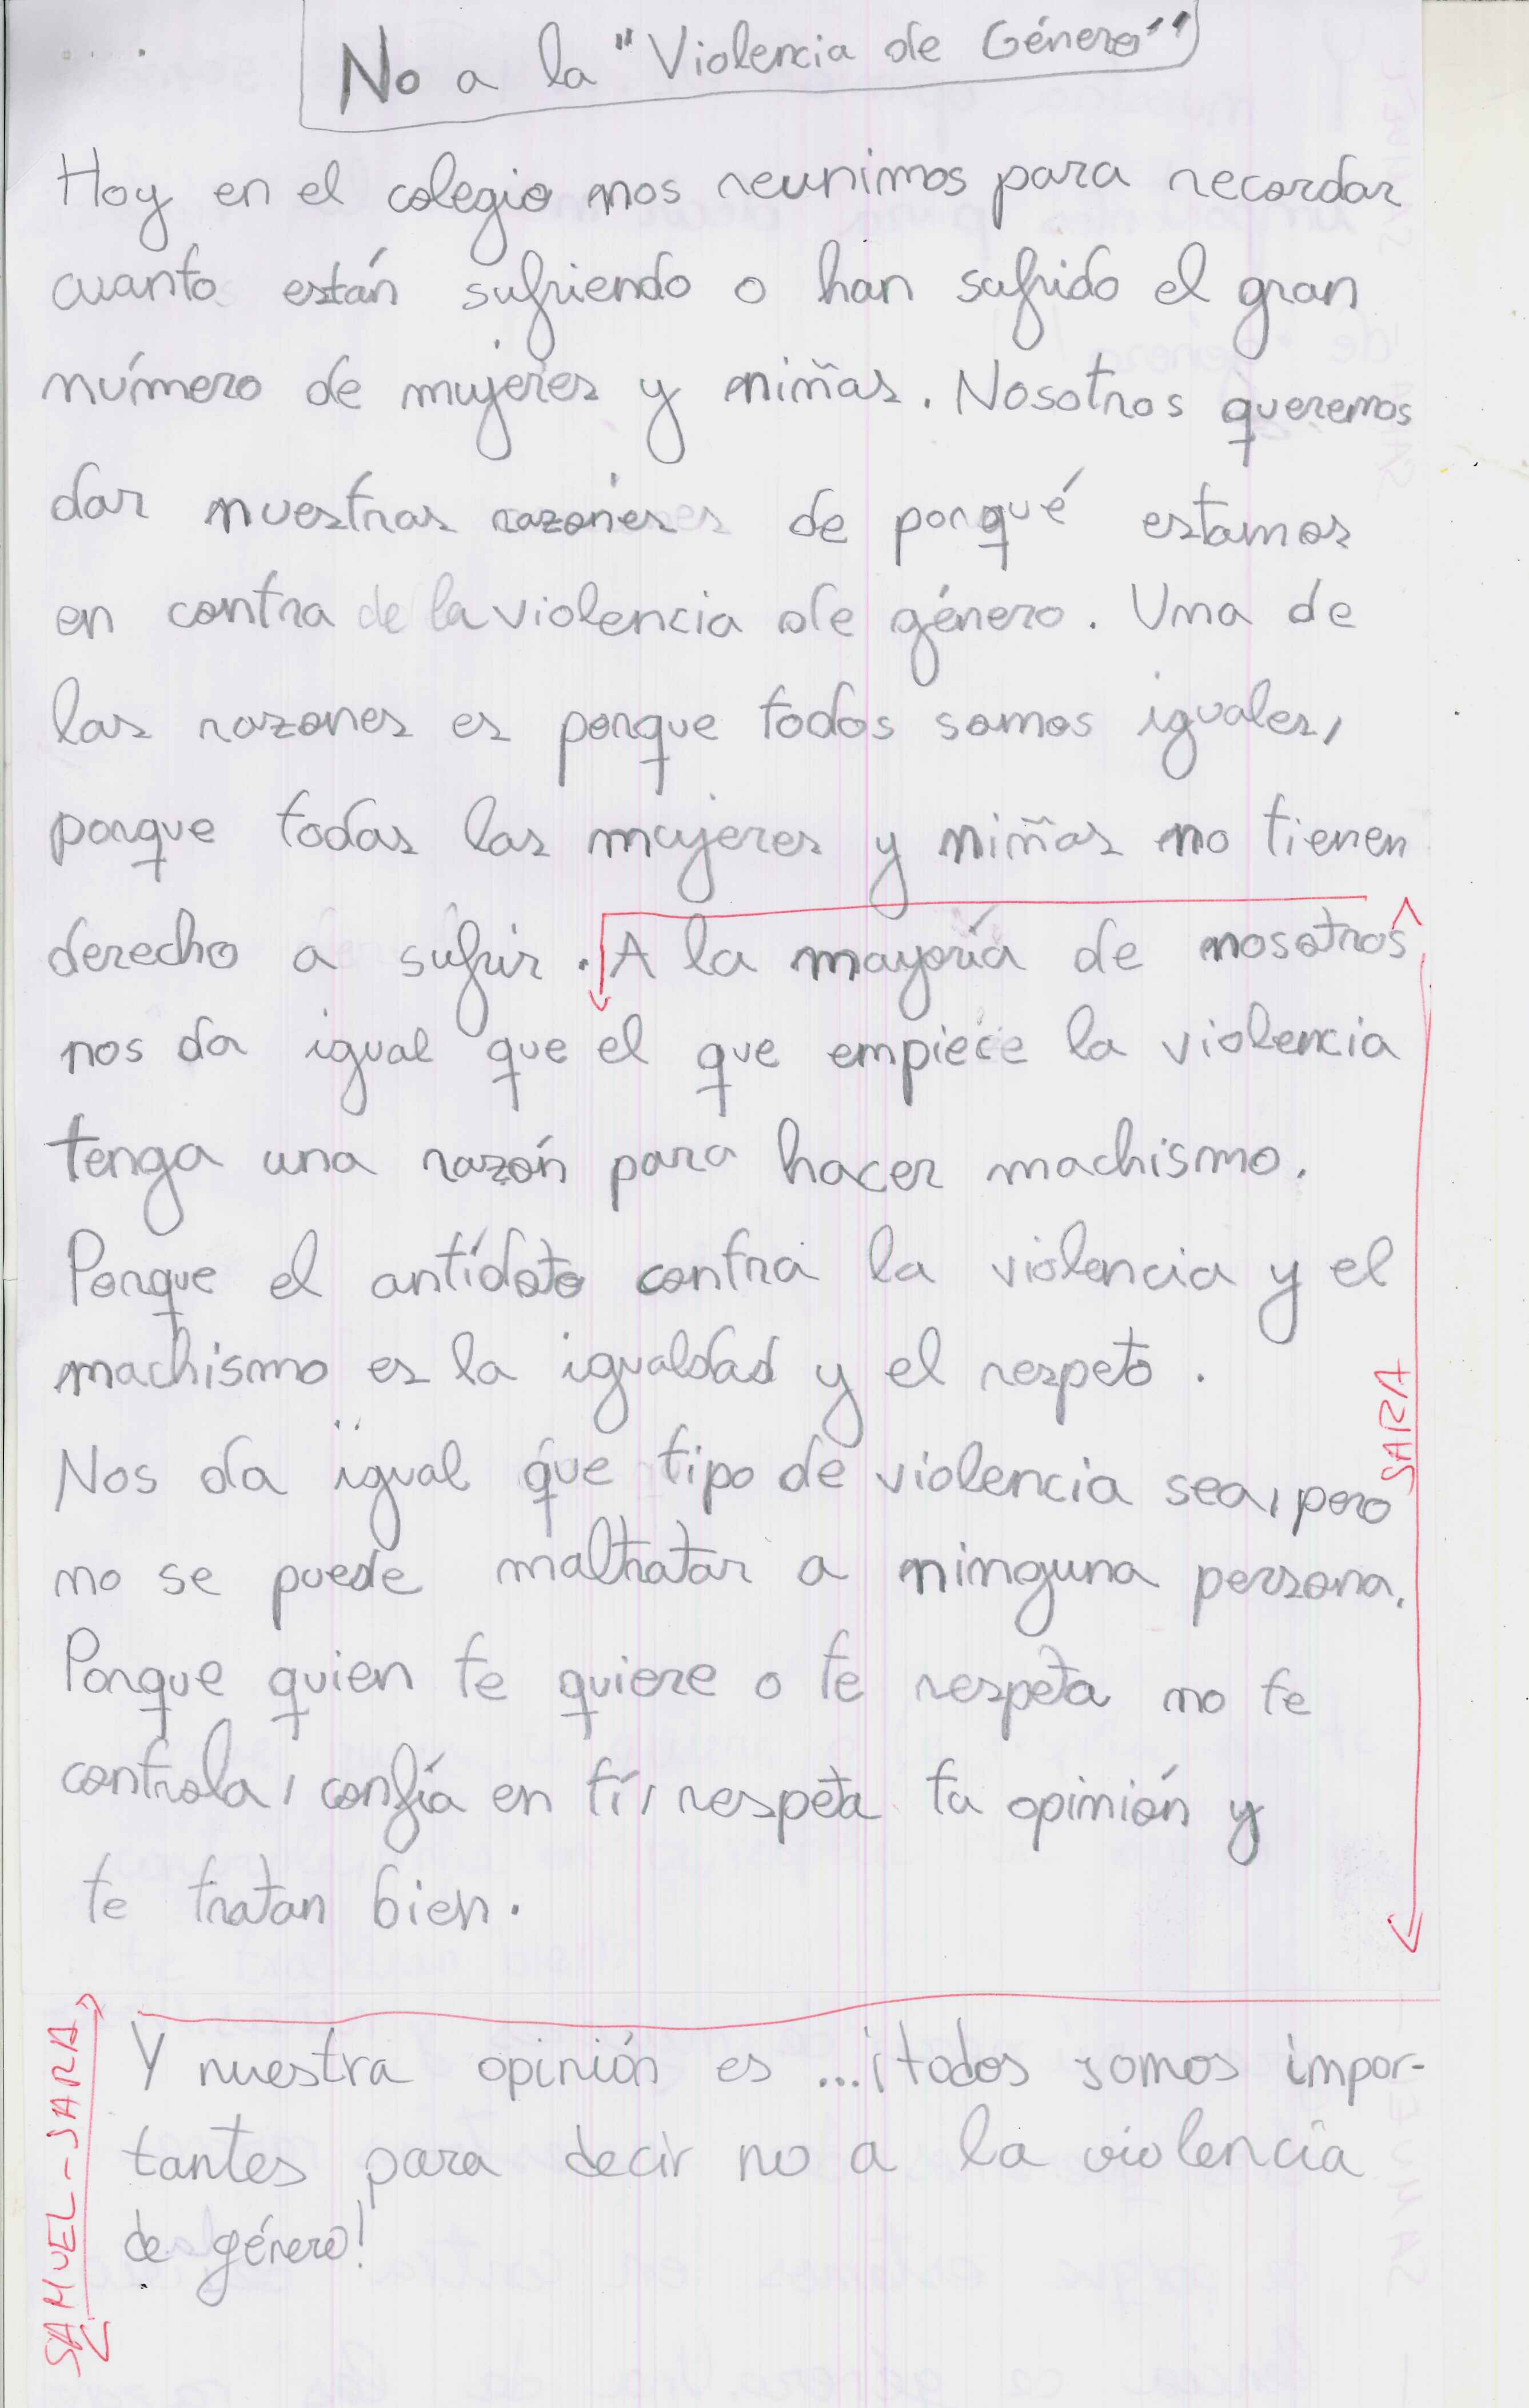 No a la "Violencia de Género"
Hoy en el colegio nos reunimos para recordar
cuanto están sufriendo o han sufrido el gran
número de mujeres y niñas. Nosotros queremos
dar nuestras razones de porqué estamos
en contra de la violencia de género. Una de
las razones es porque todos somos iguales,
porque todas las mujeres y niñas no tienen
derecho a sufrir. A la mayoría de nosotros
nos da igual que el que empiece la violencia
tenga una razón para hacer machismo.
Porque el antídoto contra la violencia y el
machismo es la igualdad y el respeto.
SARA
Nos da igual que tipo de violencia sea, pero
no se puede maltratar a ninguna persona.
Porque quien te quiere o te respeta no te
controla, confía en tí, respeta tu opinión y
te tratan bien.
SAMUEL-SARA
Y nuestra opinión es ...¡todos somos impor-
tantes para decir no a la violencia
de género!